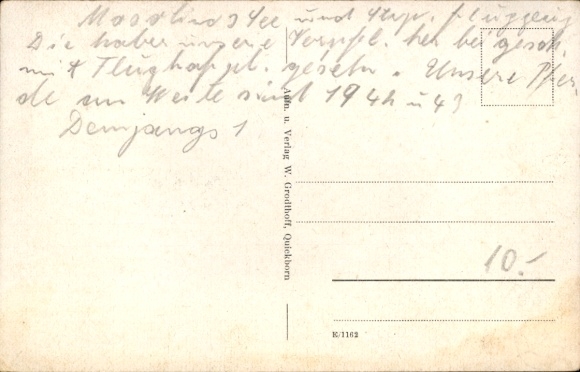 und Flugzeug
Die haben unsere Verpfl. her bei gesch.
mit Flughappl. gesehn. Unsere Pfer-
de am Weite sind 1942 u 43
Demjangs 1
Aufn. u. Verlag W. Grodthoff, Quickborn
10.-
E/1162